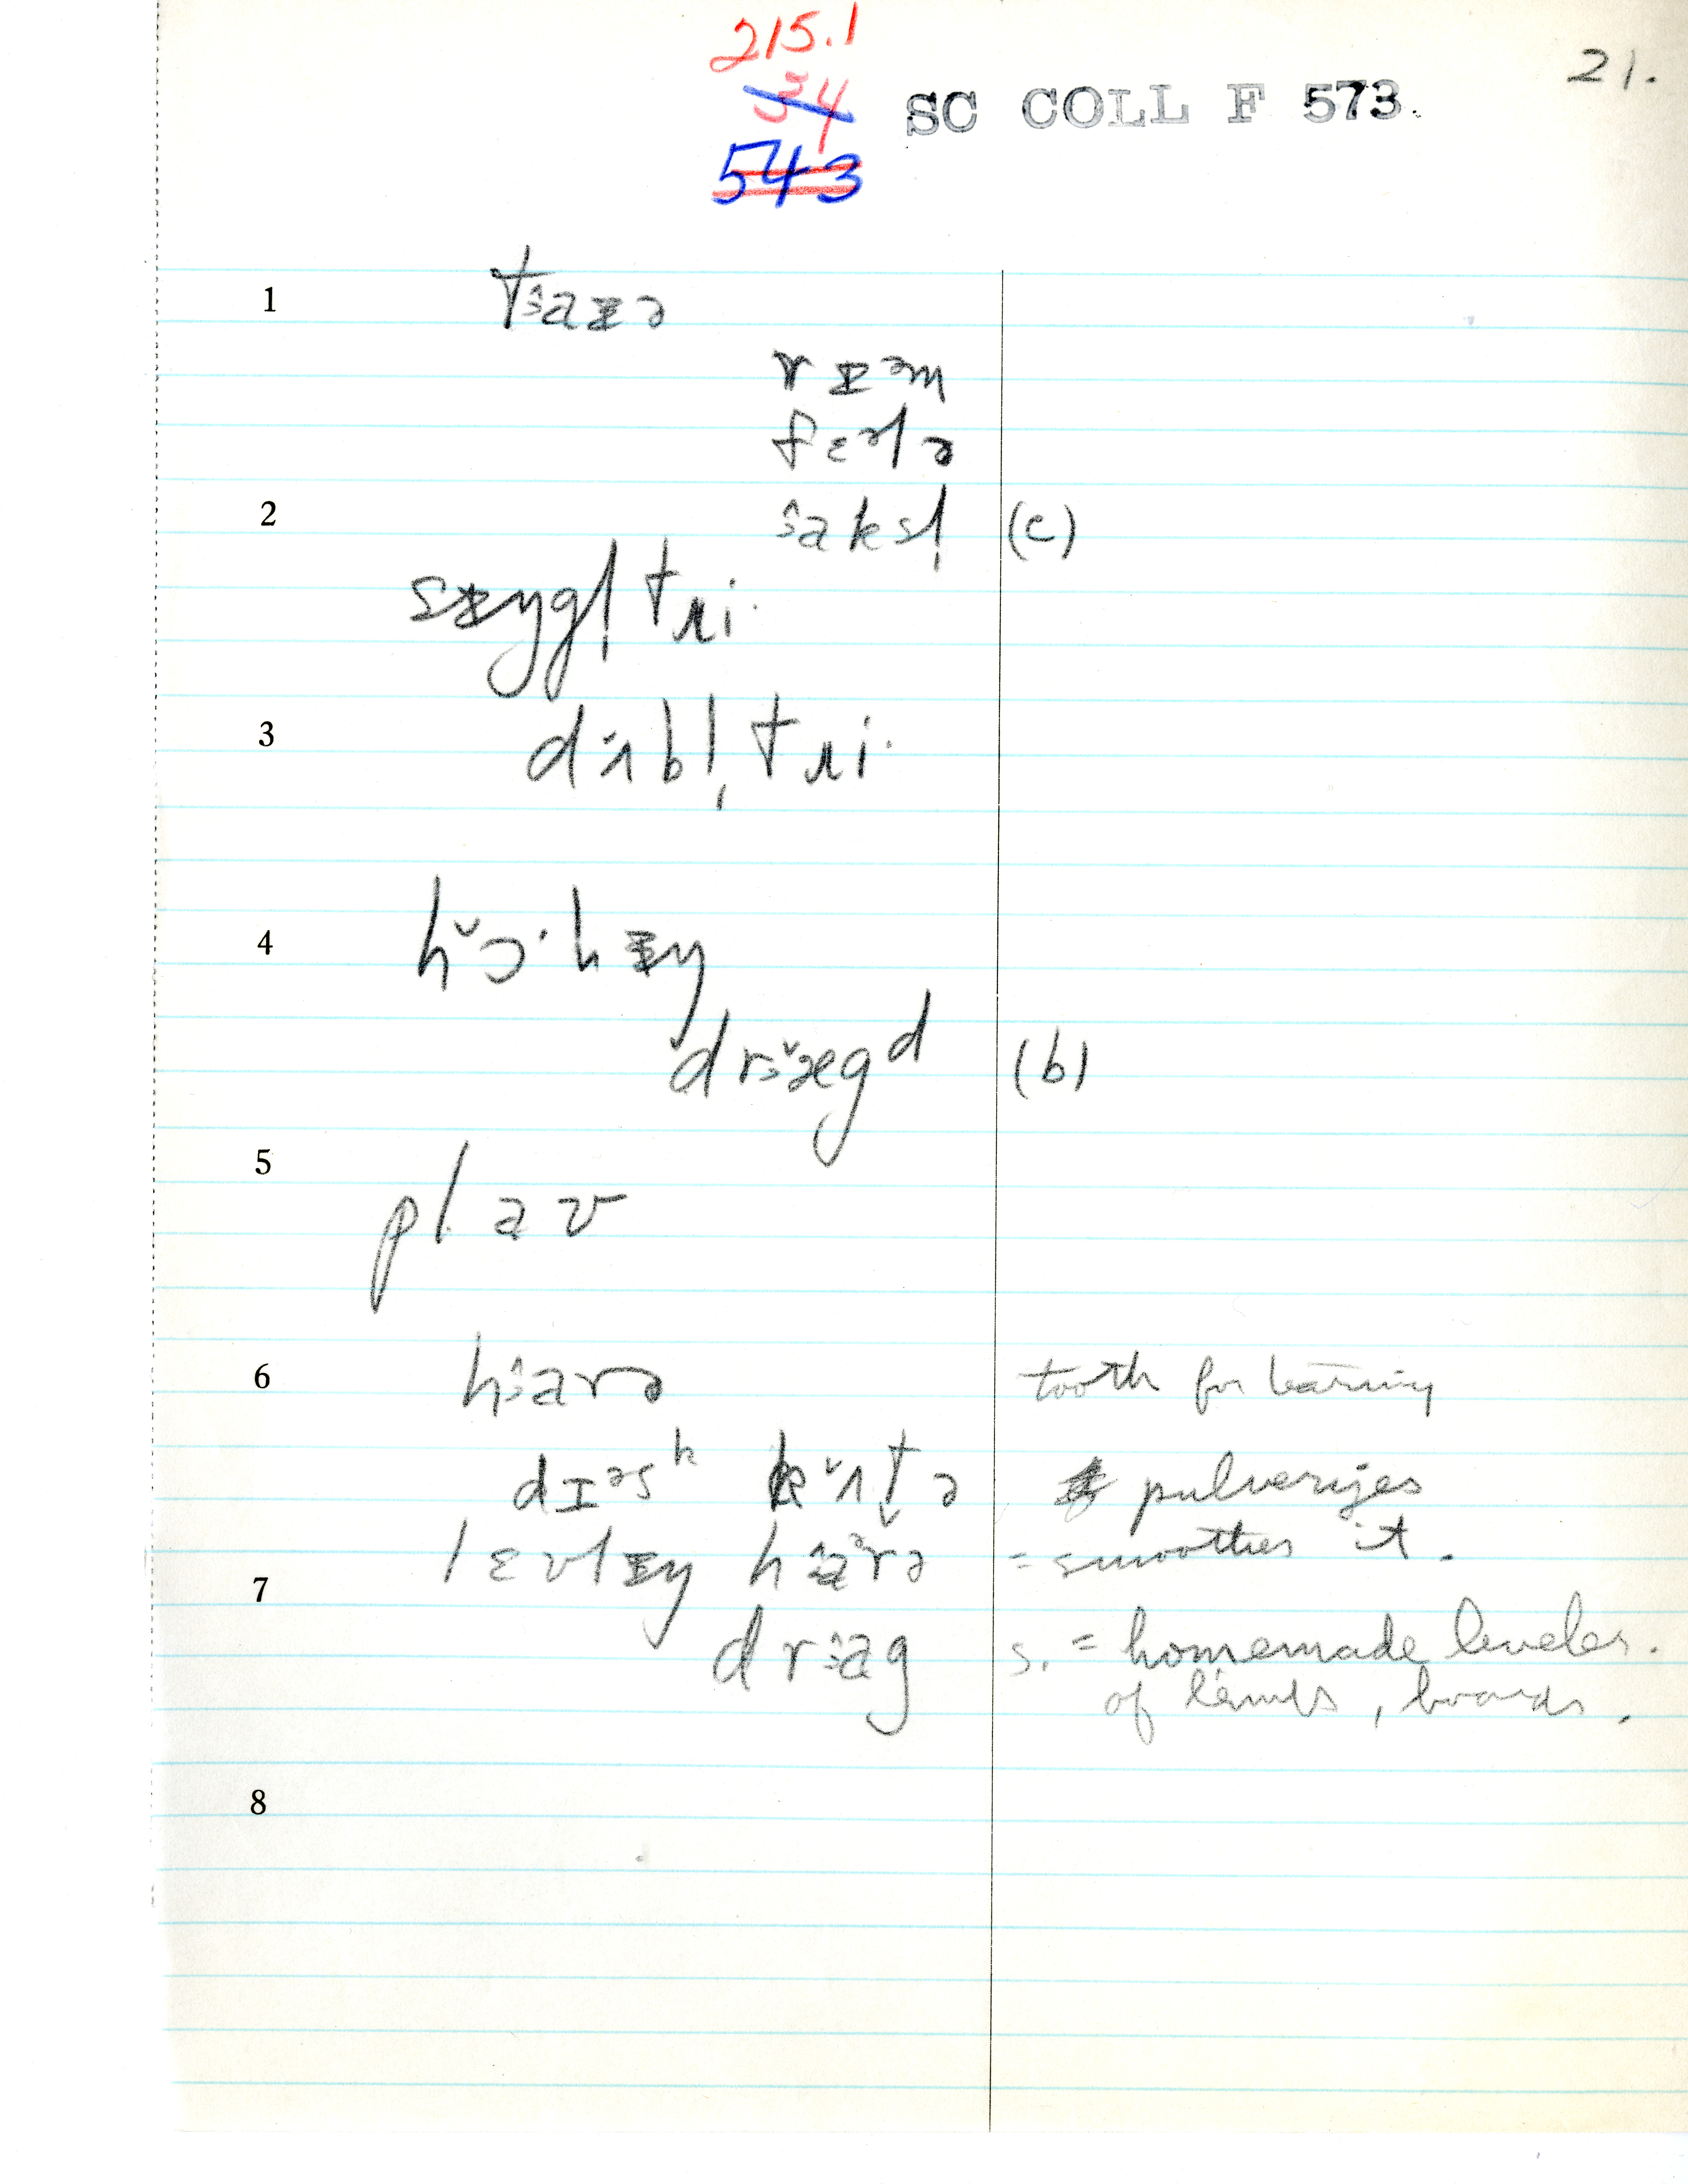 215.1
34
543
SC COLL F 573.
21.
1 tɜ̂aɪə
rɪəm
fɛəlɔ
2 ɜ̂aksl̩ (c)
sɪŋgl̩ tri·
3 dɜʌbl̩ tri·
4 hɔ̌·hɪŋ
drɜ̌ægd (b)
5 plaʊ
6 hɜ̂arə tooth for
dɪəsk kʌ̌tə pulverizes
lɛvlɪŋ hɜ̂aərə = smoothes it.
7 drɜag s. = homemade leveler.
of , boards.
8